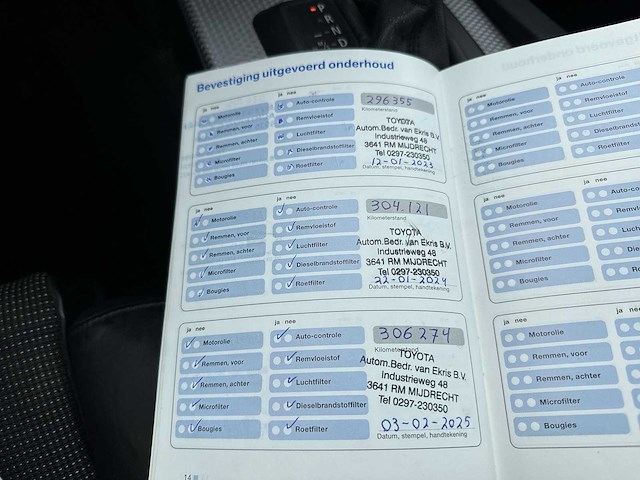 P
R
N
D
Bevestiging uitgevoerd onderhoud
ja nee
ja nee
Motorolie
Auto-controle
Remmen, voor
Remvloeistof
Remmen, achter
Luchtfilter
Microfilter
Dieselbrandstoffilter
Bougies
Roetfilter
296355
Kilometerstand
TOYOTA
Autom.Bedr. van Ekris B.V.
Industrieweg 48
3641 RM MIJDRECHT
Tel 0297-230350
12-01-2023
Datum, stempel, handtekening
ja nee
ja nee
Motorolie
Auto-controle
Remmen, voor
Remvloeistof
Remmen, achter
Luchtfilter
Microfilter
Dieselbrandstoffilter
Bougies
Roetfilter
304.121
Kilometerstand
TOYOTA
Autom.Bedr. van Ekris B.V.
Industrieweg 48
3641 RM MIJDRECHT
Tel 0297-230350
22-01-2024
Datum, stempel, handtekening
ja nee
ja nee
Motorolie
Auto-controle
Remmen, voor
Remvloeistof
Remmen, achter
Luchtfilter
Microfilter
Dieselbrandstoffilter
Bougies
Roetfilter
306274
Kilometerstand
TOYOTA
Autom.Bedr. van Ekris B.V.
Industrieweg 48
3641 RM MIJDRECHT
Tel 0297-230350
03-02-2025
Datum, stempel, handtekening
14
ja nee
ja nee
Motorolie
Auto-controle
Remmen, voor
Remvloeistof
Remmen, achter
Luchtfilter
Microfilter
Dieselbrandst
Bougies
Roetfilter
ja nee
ja nee
Motorolie
Auto-co
Remmen, voor
Remvl
Remmen, achter
Luch
Microfilter
Dies
Bougies
Roe
ja nee
ja
Motorolie
Remmen, voor
Remmen, achter
Microfilter
Bougies